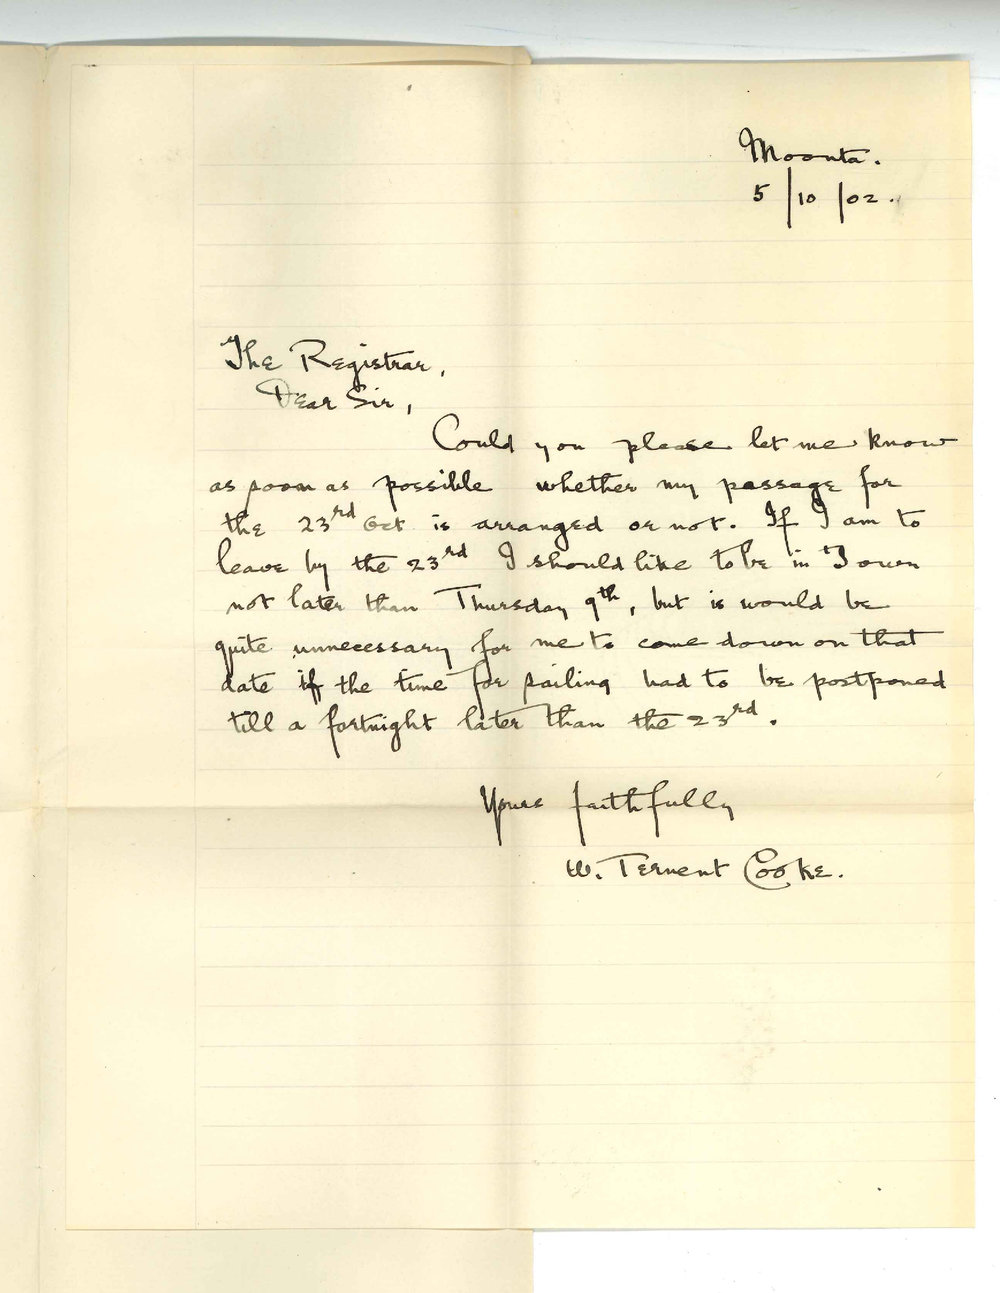 Moonta.
5/10/02.
The Registrar,
Dear Sir,
Could you please let me know
as soon as possible whether my passage for
the 23rd Oct is arranged or not. If I am to
leave by the 23rd I should like to be in Town
not later than Thursday 9th, but is would be
quite unnecessary for me to come down on that
date if the time for sailing had to be postponed
till a fortnight later than the 23rd.
Yours faithfully
W. Ternent Cooke.